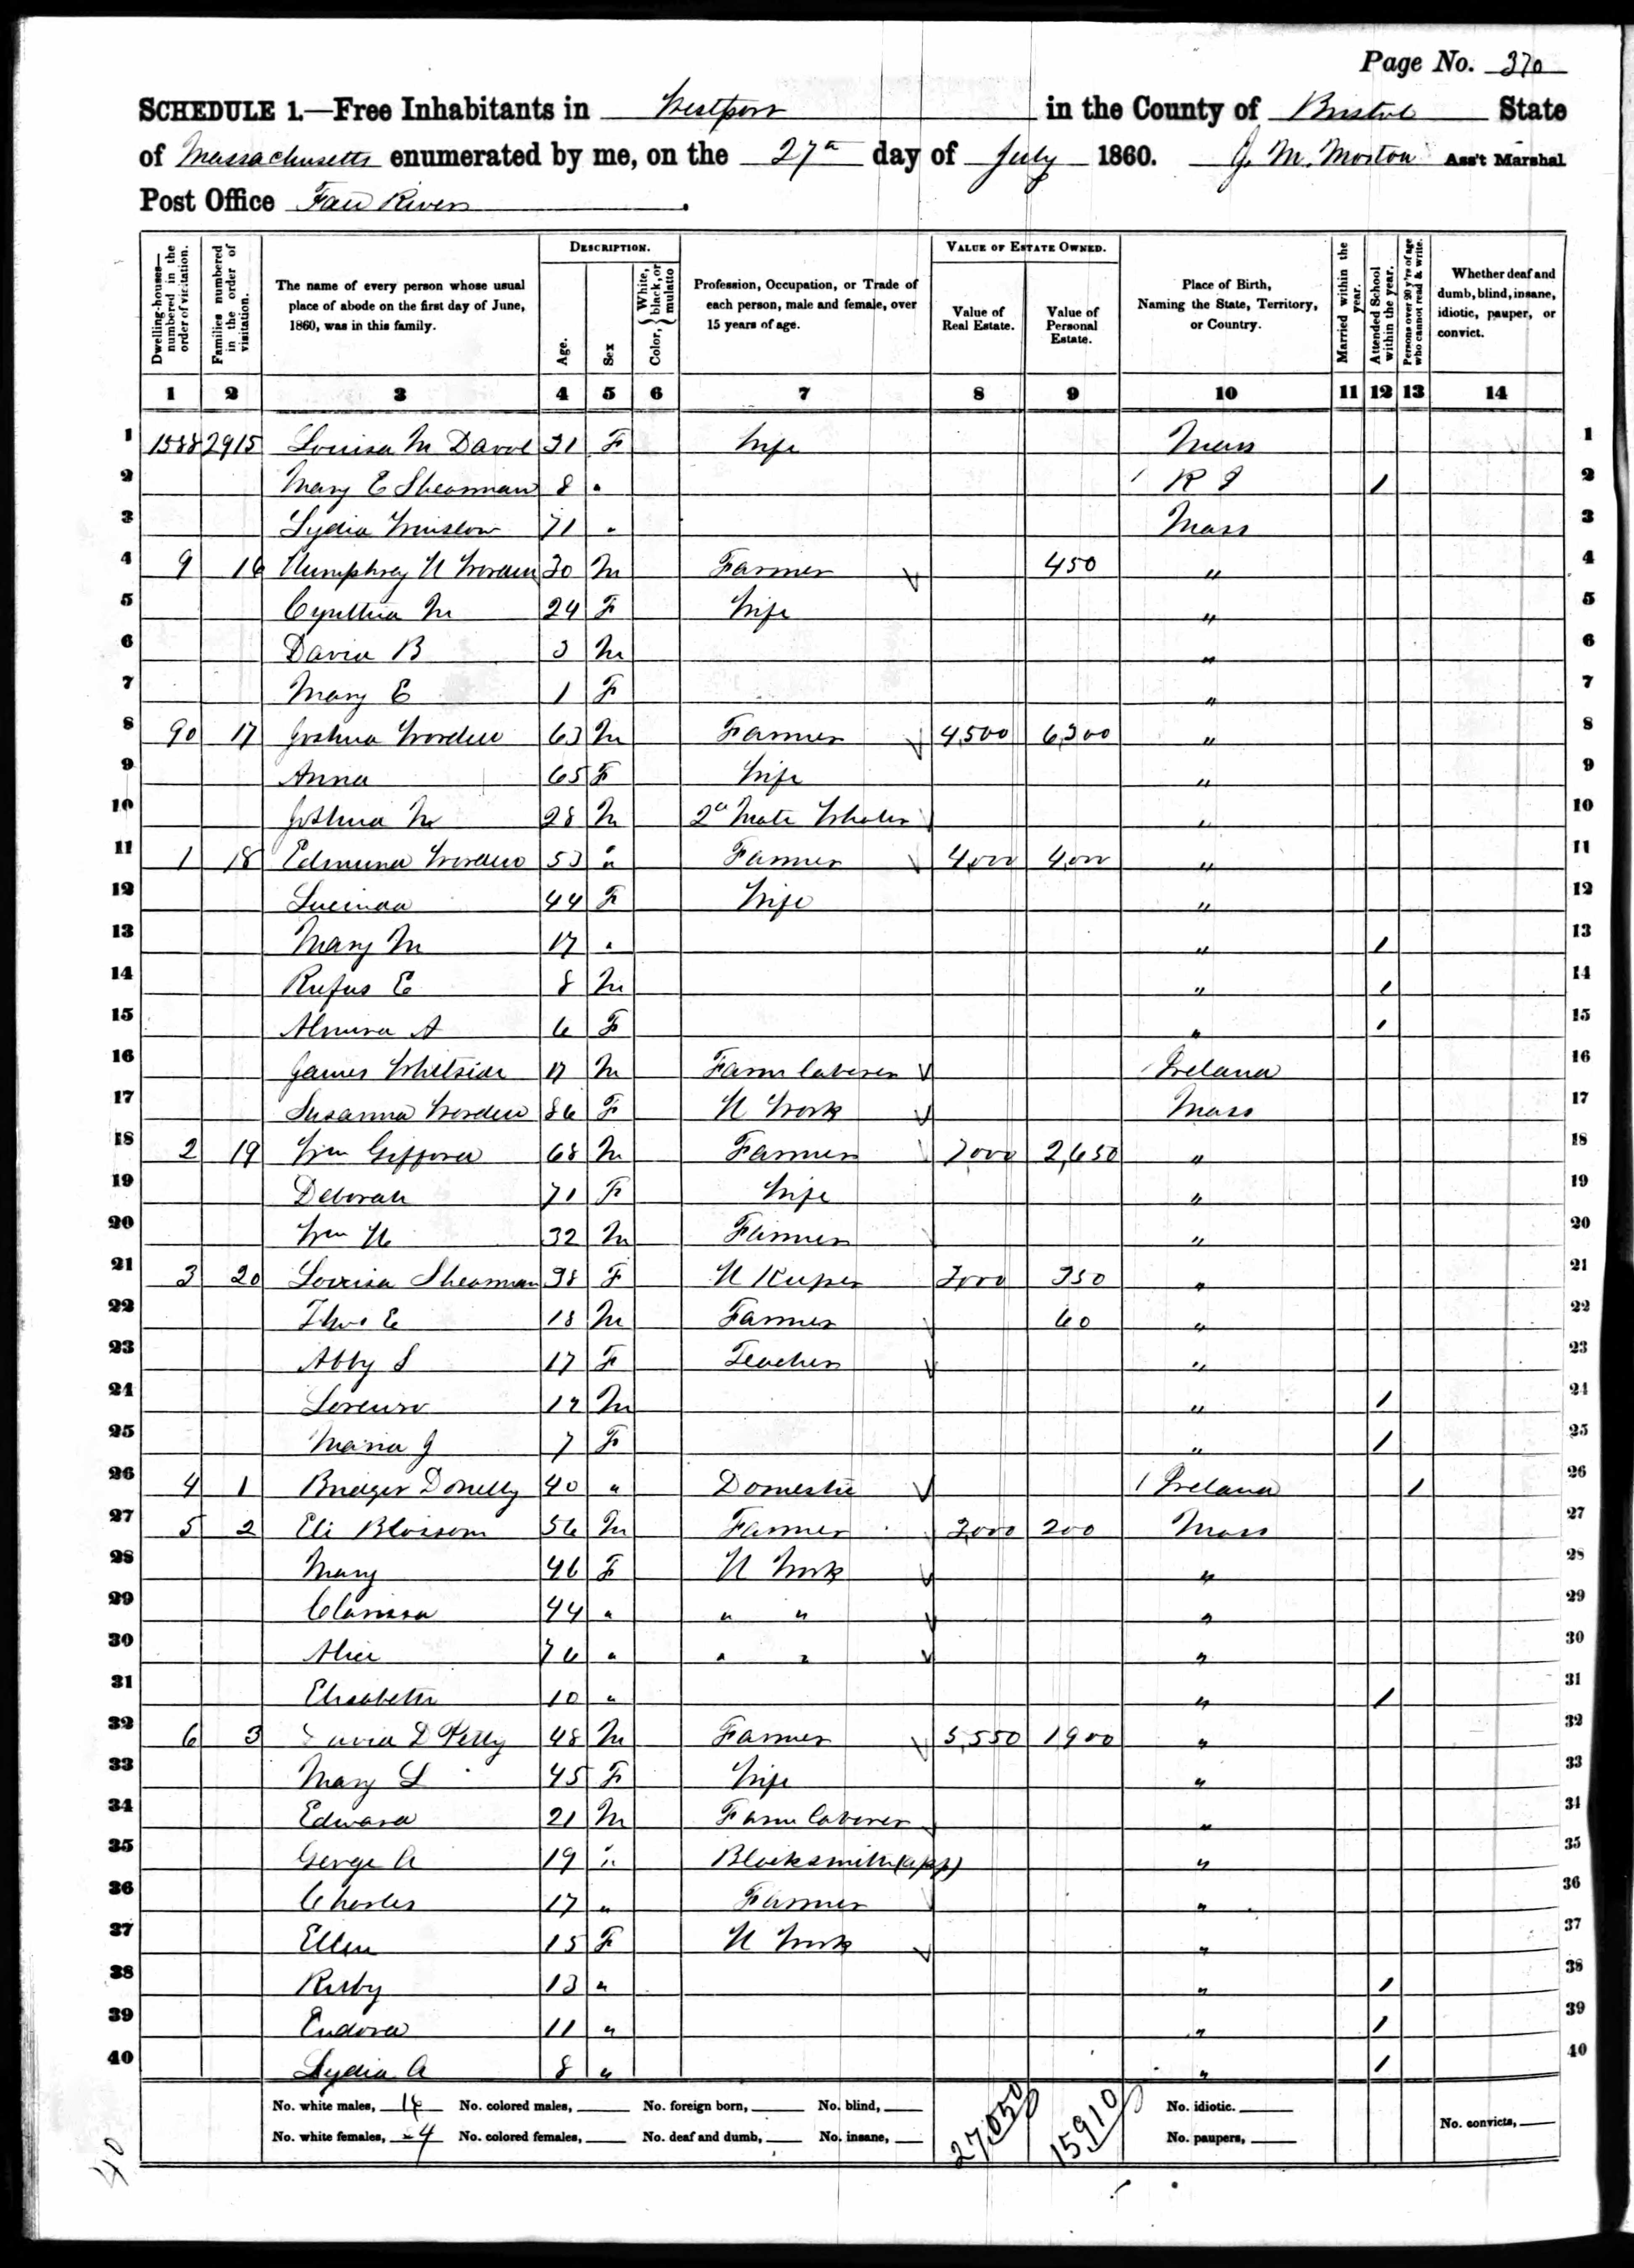 Page No. 370
SCHEDULE 1.—Free Inhabitants in Westport in the County of Bristol State
of Massachusetts enumerated by me, on the 27th day of July 1860. J. M. Morton Ass't Marshal
Post Office Fall River.
Dwelling-houses—numbered in the order of visitation.
Families numbered in the order of visitation.
The name of every person whose usual place of abode on the first day of June, 1860, was in this family.
DESCRIPTION.
Age.
Sex
Color, { White, black, or mulatto
Profession, Occupation, or Trade of each person, male and female, over 15 years of age.
VALUE OF ESTATE OWNED.
Value of Real Estate.
Value of Personal Estate.
Place of Birth, Naming the State, Territory, or Country.
Married within the year.
Attended School within the year.
Persons over 20 y'rs of age who cannot read & write.
Whether deaf and dumb, blind, insane, idiotic, pauper, or convict.
1 2 3 4 5 6 7 8 9 10 11 12 13 14
1 1588 2915 Louisa M Davol 31 F Wife Mass 1
2 Mary E Shearman 8 " R I / 2
3 Lydia Winslow 71 " Mass 3
4 9 16 Humphrey H Worden 30 M Farmer 450 " 4
5 Cynthia M 24 F Wife " 5
6 David B 3 M " 6
7 Mary E 1 F " 7
8 90 17 Joshua Worden 63 M Farmer 4,500 6,300 " 8
9 Anna 65 F Wife " 9
10 Joshua M 28 M 2d Mate Whaler " 10
11 1 18 Edmund Worden 53 " Farmer 4,000 4,000 " 11
12 Lucinda 44 F Wife " 12
13 Mary M 17 " " / 13
14 Rufus E 8 M " / 14
15 Almira A 6 F " / 15
16 James Whitside 17 M Farm laborer Ireland 16
17 Susanna Worden 86 F H Work Mass 17
18 2 19 Wm Gifford 68 M Farmer 7,000 2,650 " 18
19 Deborah 71 F Wife " 19
20 Wm H 32 M Farmer " 20
21 3 20 Louisa Shearman 38 F H Keeper 2,000 350 " 21
22 Thos E 18 M Farmer 60 " 22
23 Abby S 17 F Teacher " 23
24 Lorenzo 12 M " / 24
25 Maria J 7 F " / 25
26 4 1 Bridget Donelly 40 " Domestic Ireland / 26
27 5 2 Eli Blossom 56 M Farmer 2,000 200 Mass 27
28 Mary 46 F H Work " 28
29 Clarissa 44 " " " " 29
30 Alice 76 " " " " 30
31 Elisabeth 10 " " / 31
32 6 3 David D Petty 48 M Farmer 5,550 1,900 " 32
33 Mary L 45 F Wife " 33
34 Edward 21 M Farm laborer " 34
35 George A 19 " Blacksmith (app) " 35
36 Charles 17 " Farmer " 36
37 Ellen 15 F H Work " 37
38 Ruby 13 " " / 38
39 Eudora 11 " " / 39
40 Lydia A 8 " " / 40
No. white males, 16 No. colored males, No. foreign born, No. blind, 27,050 15,910 No. idiotic.
No. white females, 24 No. colored females, No. deaf and dumb, No. insane, No. paupers, No. convicts,
40